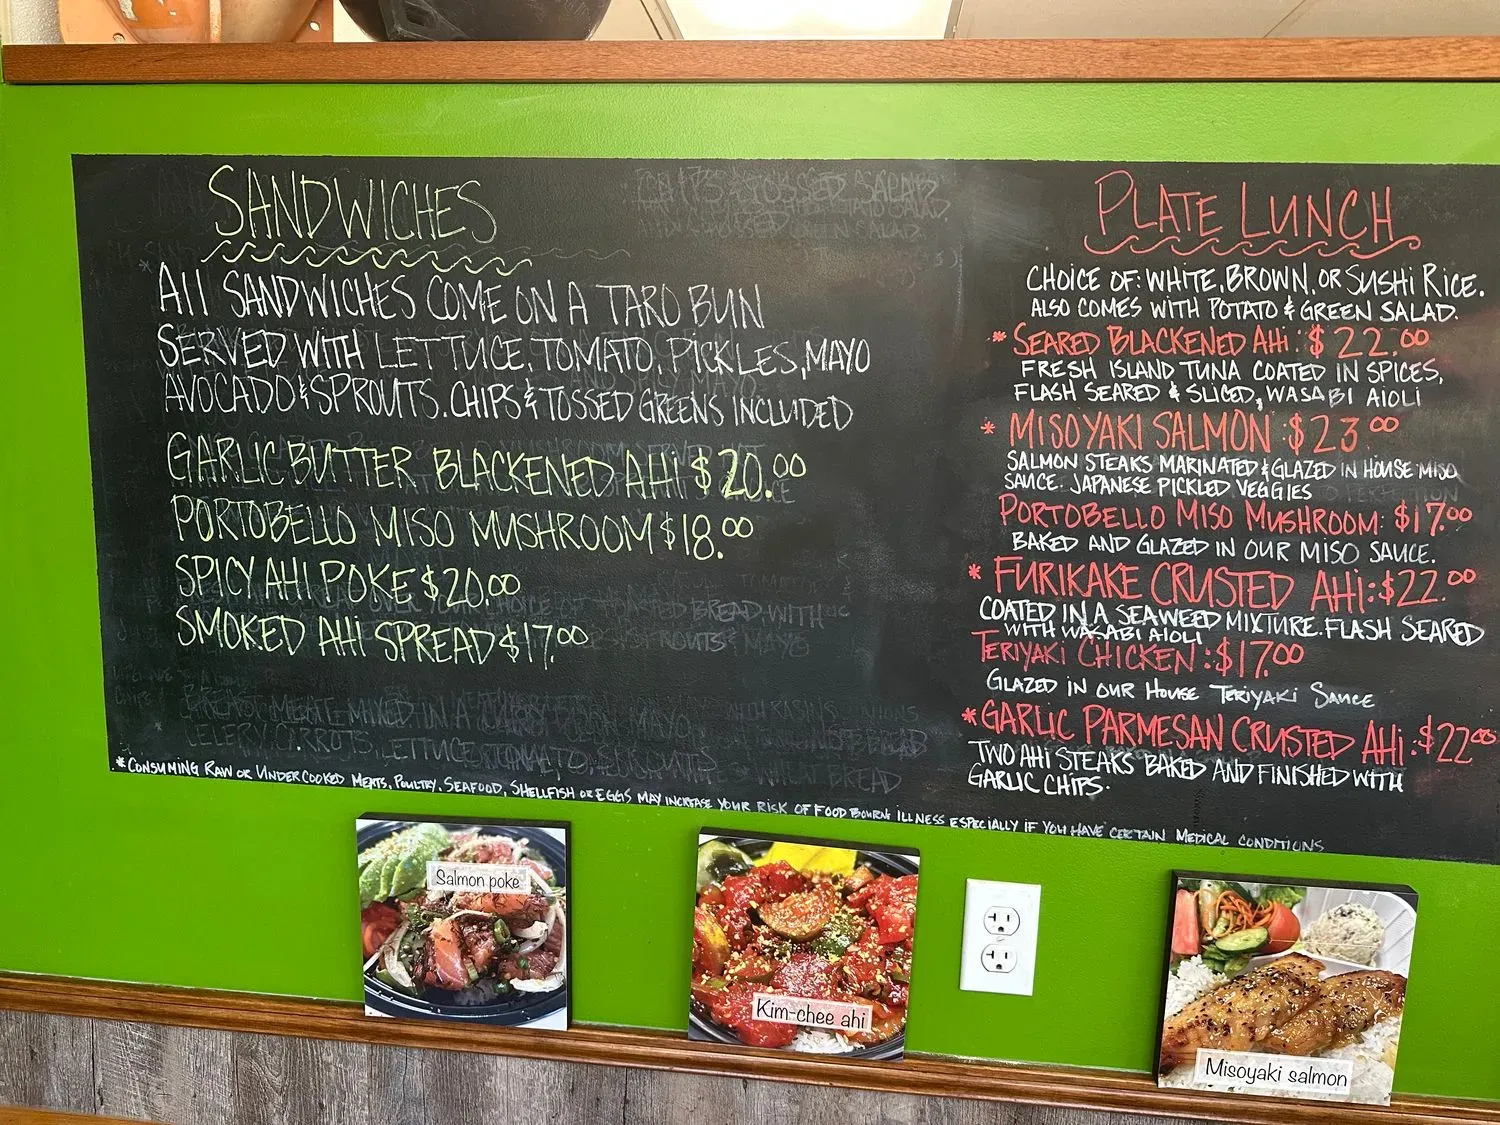 SANDWICHES
*All SANDWICHES COME ON A TARO BUN
SERVED WITH LETTUCE, TOMATO, PICKLES, MAYO
AVOCADO & SPROUTS. CHIPS & TOSSED GREENS INCLUDED
GARLIC BUTTER BLACKENED AHi $20.00
PORTOBELLO MISO MUSHROOM $18.00
SPICY AHI POKE $20.00
SMOKED AHI SPREAD $17.00
PLATE LUNCH
CHOICE OF: WHITE, BROWN, OR SUSHI RICE.
ALSO COMES WITH POTATO & GREEN SALAD.
* SEARED BLACKENED AHi: $22.00
FRESH ISLAND TUNA COATED IN SPICES,
FLASH SEARED & SLICED, WASABI AIOLI
* MISOYAKI SALMON: $23.00
SALMON STEAKS MARINATED & GLAZED IN HOUSE MISO
SAUCE. JAPANESE PICKLED VEGGIES
PORTOBELLO MISO MUSHROOM: $17.00
BAKED AND GLAZED IN OUR MISO SAUCE.
* FURIKAKE CRUSTED AHi: $22.00
COATED IN A SEAWEED MIXTURE. FLASH SEARED
WITH WASABI AIOLI
TERIYAKI CHICKEN: $17.00
GLAZED IN OUR HOUSE TERIYAKI SAUCE
* GARLIC PARMESAN CRUSTED AHi: $22.00
TWO AHI STEAKS BAKED AND FINISHED WITH
GARLIC CHIPS.
* CONSUMING RAW OR UNDERCOOKED MEATS, POULTRY, SEAFOOD, SHELLFISH OR EGGS MAY INCREASE YOUR RISK OF FOOD BOURNE ILLNESS ESPECIALLY IF YOU HAVE CERTAIN MEDICAL CONDITIONS
Salmon poke
Kim-chee ahi
Misoyaki salmon